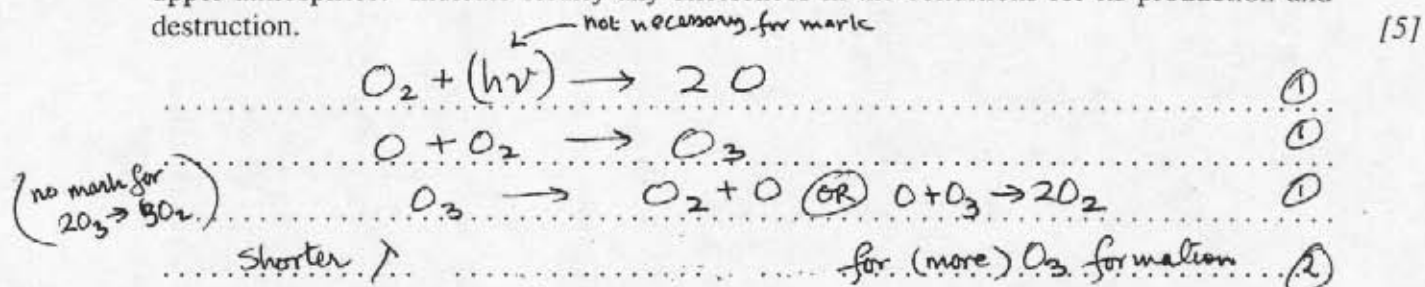 destruction.
not necessary for mark
[5]
O₂ + (hν) → 2 O ①
O + O₂ → O₃ ①
(no mark for 2O₃ → 3O₂) O₃ → O₂ + O (OR) O + O₃ → 2O₂ ①
Shorter λ for (more) O₃ formation ②